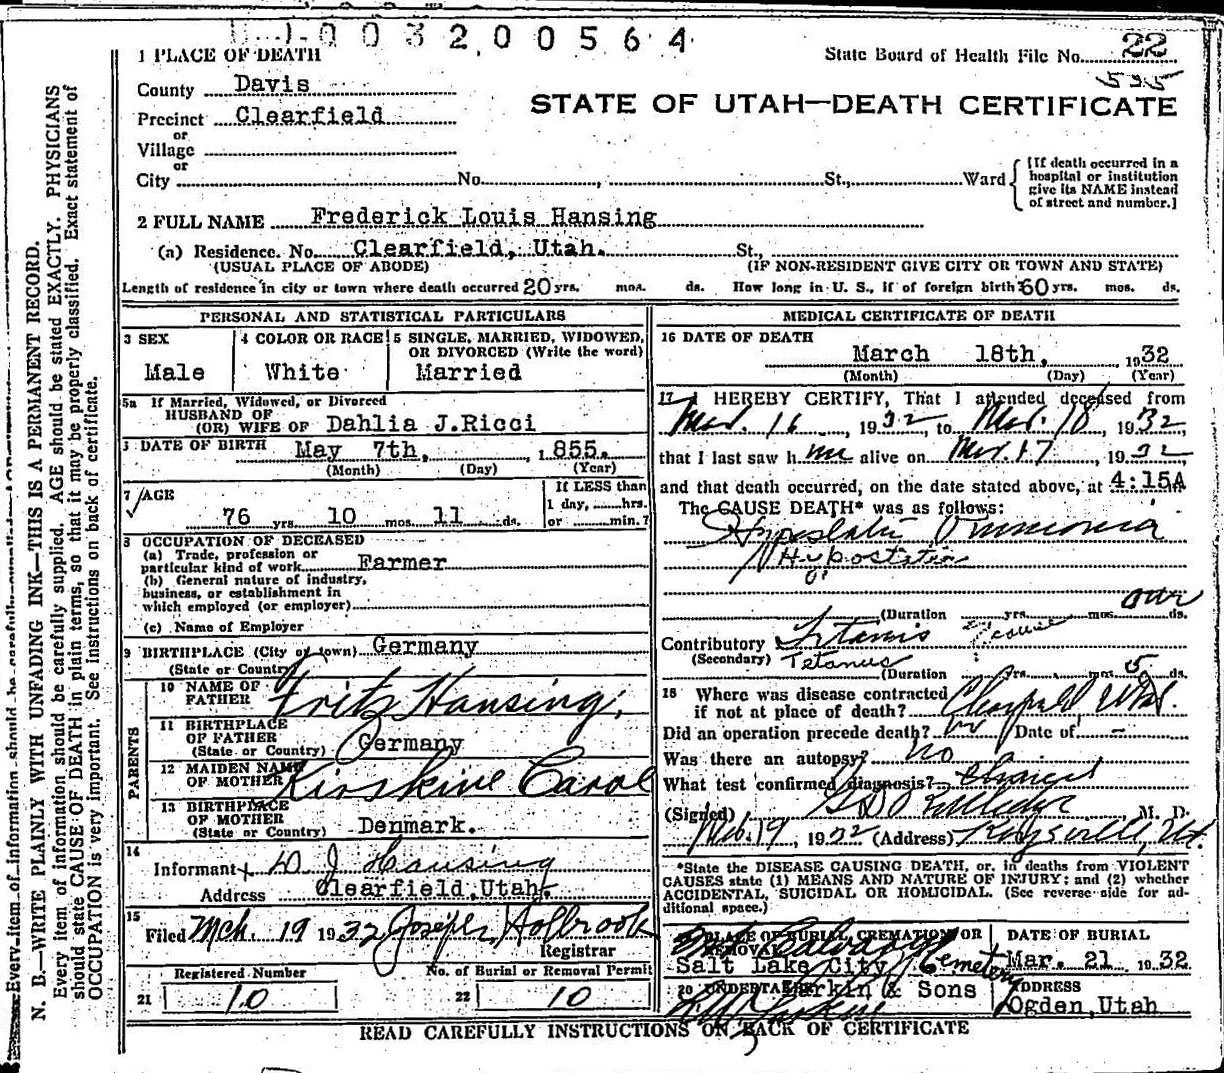 003200564
1 PLACE OF DEATH
State Board of Health File No. 22
535
County Davis
STATE OF UTAH—DEATH CERTIFICATE
Precinct Clearfield
or
Village
or
City No. , St., Ward
[If death occurred in a
hospital or institution
give its NAME instead
of street and number.]
2 FULL NAME Frederick Louis Hansing
(a) Residence. No. Clearfield, Utah. St.,
(USUAL PLACE OF ABODE) (IF NON-RESIDENT GIVE CITY OR TOWN AND STATE)
Length of residence in city or town where death occurred 20 yrs. mos. ds. How long in U. S., if of foreign birth 60 yrs. mos. ds.
PERSONAL AND STATISTICAL PARTICULARS
3 SEX
Male
4 COLOR OR RACE
White
5 SINGLE, MARRIED, WIDOWED,
OR DIVORCED (Write the word)
Married
5a If Married, Widowed, or Divorced
HUSBAND OF
(OR) WIFE OF Dahlia J.Ricci
6 DATE OF BIRTH May 7th, 1855.
(Month) (Day) (Year)
7 AGE
76 yrs. 10 mos. 11 ds.
If LESS than
1 day, hrs.
or min.?
8 OCCUPATION OF DECEASED
(a) Trade, profession or
particular kind of work Farmer
(b) General nature of industry,
business, or establishment in
which employed (or employer)
(c) Name of Employer
9 BIRTHPLACE (City or town) Germany
(State or Country)
PARENTS
10 NAME OF
FATHER Fritz Hansing,
11 BIRTHPLACE
OF FATHER
(State or Country) Germany
12 MAIDEN NAME
OF MOTHER Kirskine Carol
13 BIRTHPLACE
OF MOTHER
(State or Country) Denmark.
14
Informant D J Hansing
Address Clearfield,Utah.
15
Filed Mch. 19 1932 Joseph Holbrook
Registrar
Registered Number
21 10
No. of Burial or Removal Permit
22 10
MEDICAL CERTIFICATE OF DEATH
16 DATE OF DEATH
March 18th, 1932
(Month) (Day) (Year)
17 I HEREBY CERTIFY, That I attended deceased from
Mar. 16, 1932, to Mar. 18, 1932
that I last saw h im alive on Mar. 17, 1932
and that death occurred, on the date stated above, at 4:15A
The CAUSE DEATH* was as follows:
Hypostatic Pneumonia
Hypostatic
(Duration yrs. mos. ds.
Contributory Tetanus
(Secondary) Tetanus
(Duration yrs. mos. 5 ds.
18 Where was disease contracted
if not at place of death? Clearfield Utah.
Did an operation precede death? no Date of –
Was there an autopsy? no
What test confirmed diagnosis? Clinical
(Signed) M. D.
19, 1932 (Address) Kaysville, Ut.
*State the DISEASE CAUSING DEATH, or, in deaths from VIOLENT
CAUSES state (1) MEANS AND NATURE OF INJURY; and (2) whether
ACCIDENTAL, SUICIDAL OR HOMICIDAL. (See reverse side for ad-
ditional space.)
19 PLACE OF BURIAL, CREMATION OR
REMOVAL
Mt. Calvary
Salt Lake City Cemetery
DATE OF BURIAL
Mar. 21 1932
20 UNDERTAKER
Larkin & Sons
ADDRESS
Ogden,Utah
READ CAREFULLY INSTRUCTIONS ON BACK OF CERTIFICATE
N. B.—WRITE PLAINLY WITH UNFADING INK—THIS IS A PERMANENT RECORD.
Every item of information should be carefully supplied. AGE should be stated EXACTLY. PHYSICIANS
should state CAUSE OF DEATH in plain terms, so that it may be properly classified. Exact statement of
OCCUPATION is very important. See instructions on back of certificate.